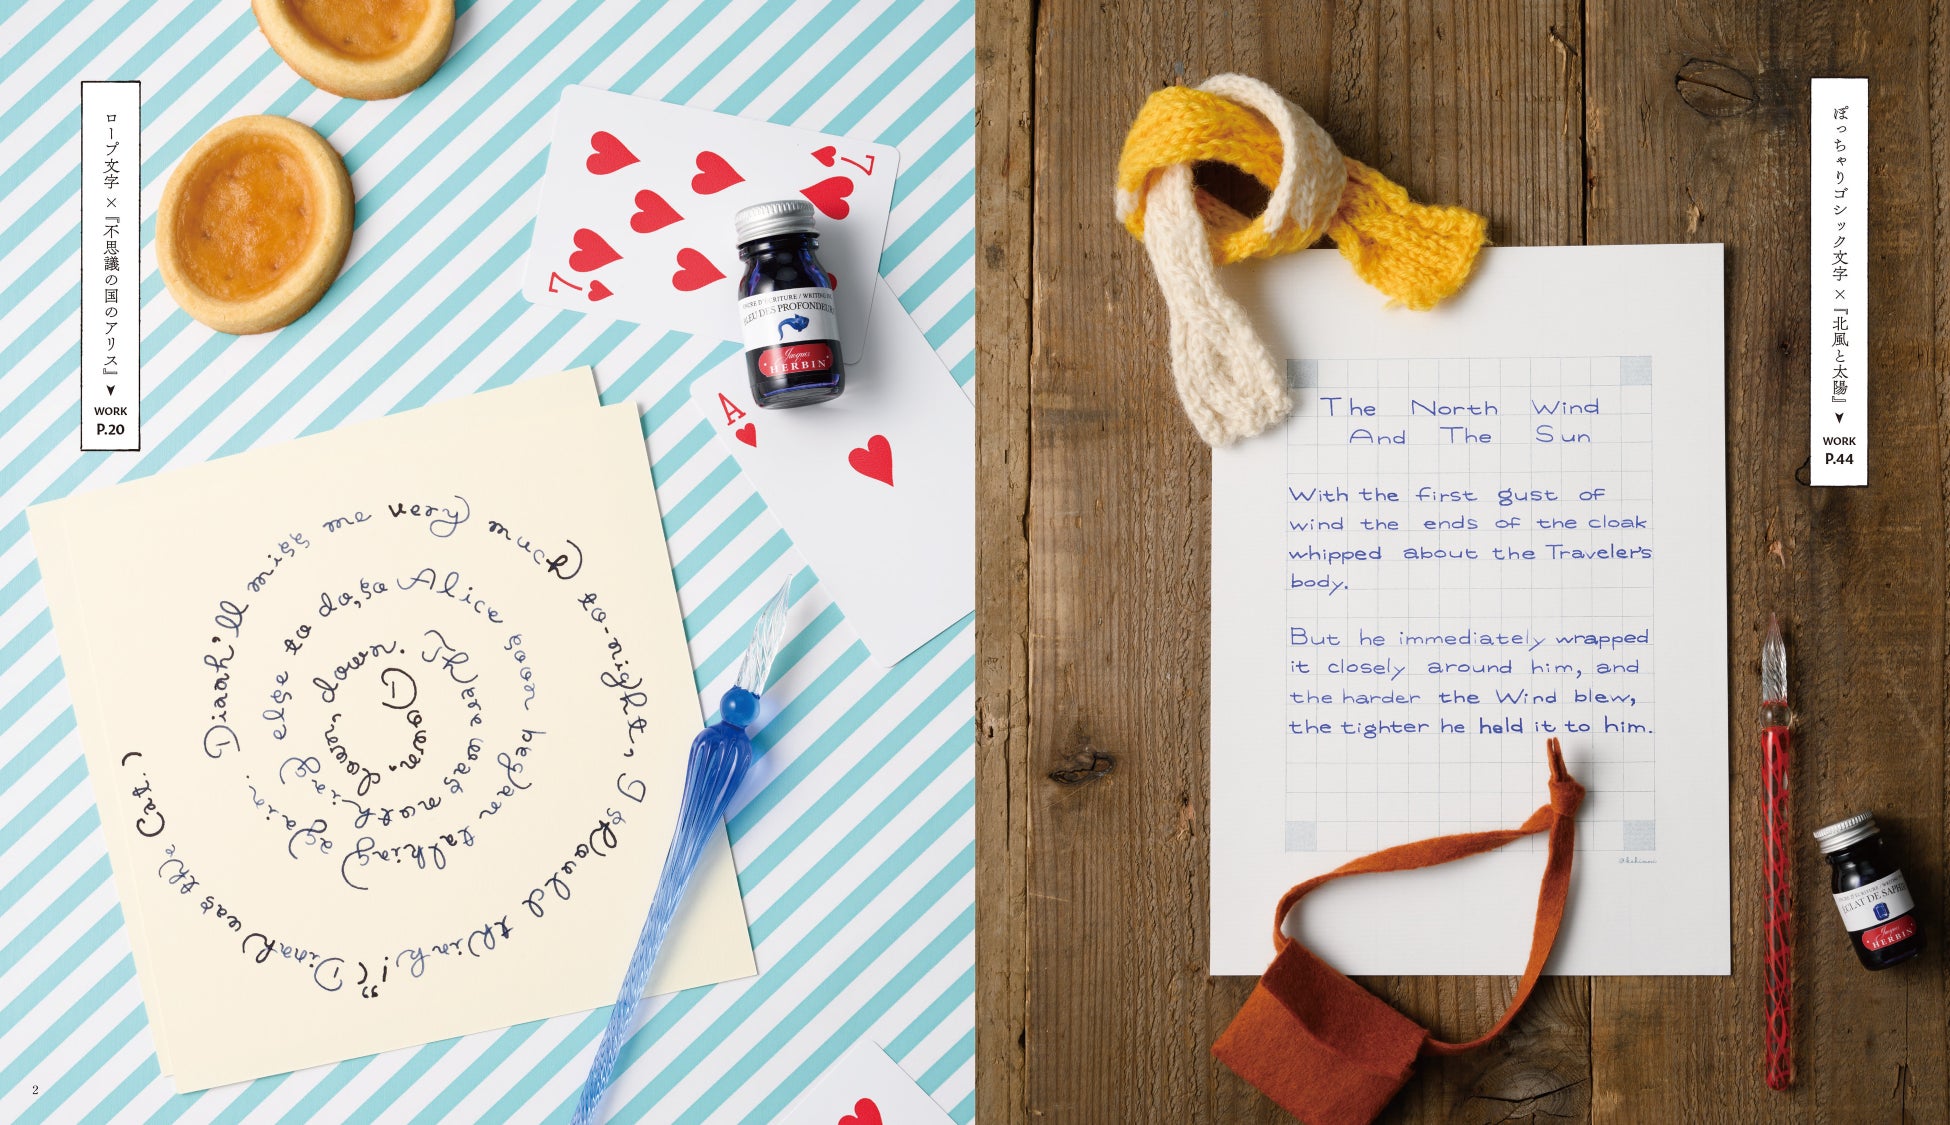 ロープ文字×『不思議の国のアリス』
WORK
P.20
7
7
A
ENCRE D'ÉCRITURE / WRITING INK
BLEU DES PROFONDEURS
Jacques
HERBIN
Down, down, down. There was nothing else to do, so Alice soon began talking again. Dinah'll miss me very much to-night, I should think!” (Dinah was the cat.)
2
ぽっちゃりゴシック文字×『北風と太陽』
WORK
P.44
The North Wind
And The Sun
With the first gust of
wind the ends of the cloak
whipped about the Traveler's
body.
But he immediately wrapped
it closely around him, and
the harder the Wind blew,
the tighter he held it to him.
ÉCLAT DE SAPHIR
Jacques
HERBIN